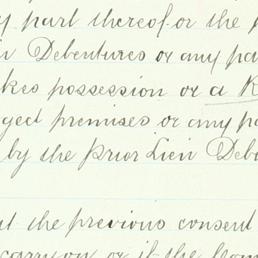 y part thereof or the
Debentures or any pa
kes possession or a R
ged premises or any p
by the Prior Lien Deb
t the previous consent
carry on or if the Com